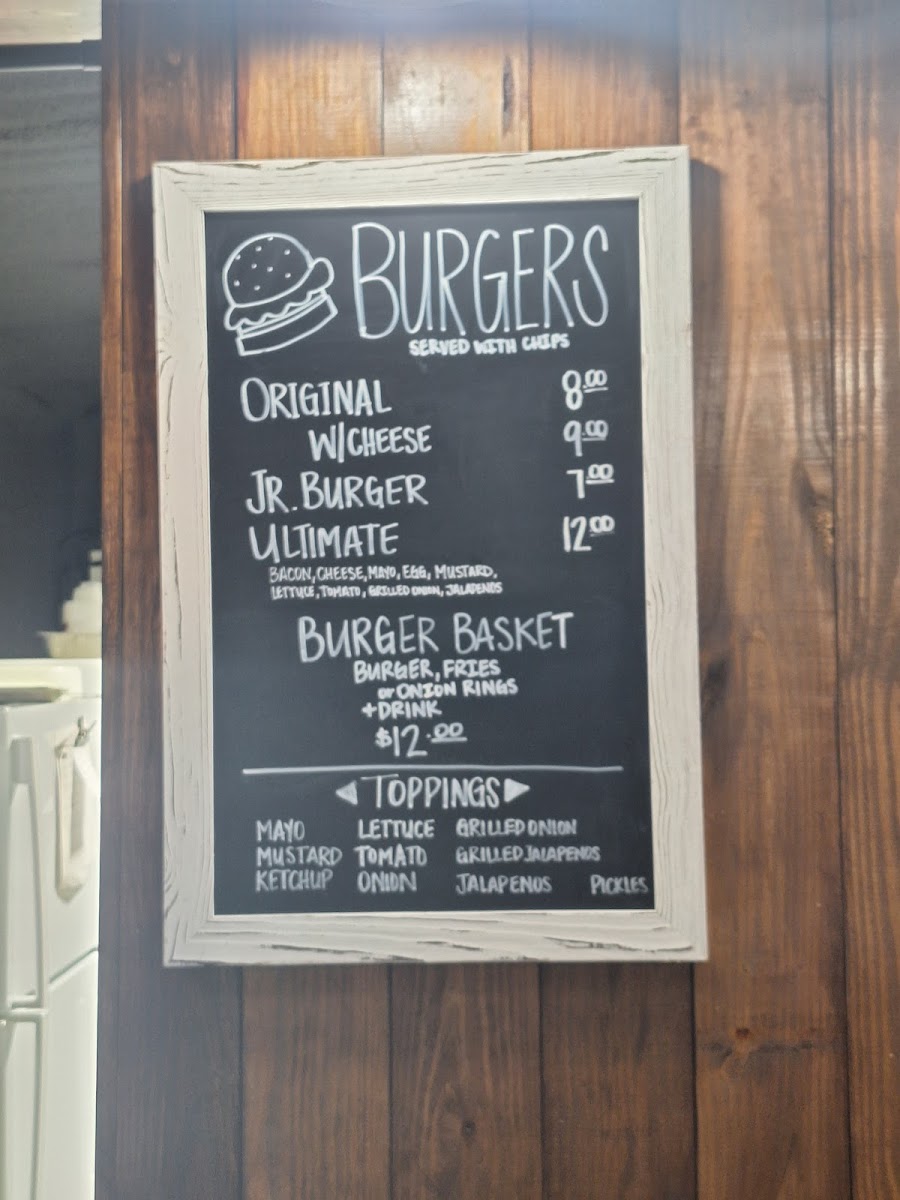 BURGERS
SERVED WITH CHIPS
ORIGINAL 8.00
W/CHEESE 9.00
JR. BURGER 7.00
ULTIMATE 12.00
BACON, CHEESE, MAYO, EGG, MUSTARD,
LETTUCE, TOMATO, GRILLED ONION, JALAPENOS
BURGER BASKET
BURGER, FRIES
or ONION RINGS
+DRINK
$12.00
TOPPINGS
MAYO LETTUCE GRILLED ONION
MUSTARD TOMATO GRILLED JALAPENOS
KETCHUP ONION JALAPENOS PICKLES